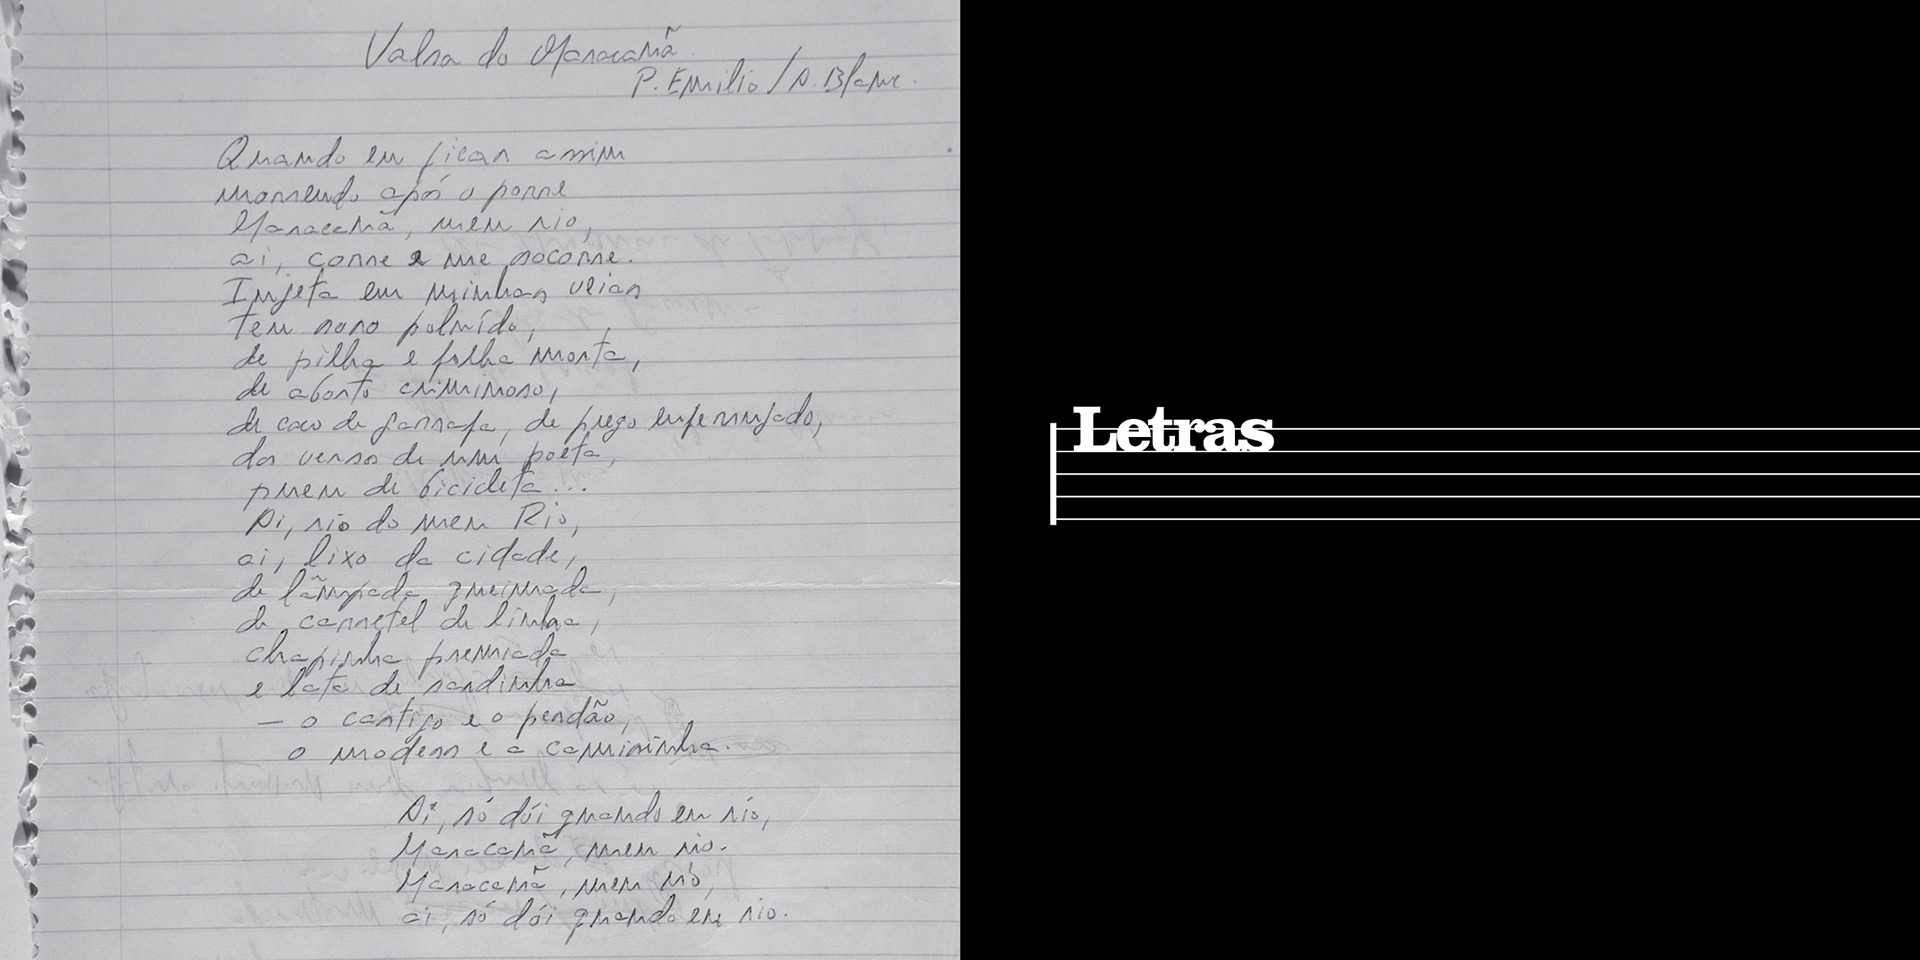 Valsa do Maracanã.
P. Emilio / A. Blanc.
Quando eu ficar assim
morrendo após o porre
Maracanã, meu rio,
ai, corre e me socorre.
Injeta em minhas veias
teu soro poluído,
de pilha e folha morta,
de aborto criminoso,
de caco de garrafa, de prego enferrujado,
dos versos de um poeta,
pneu de bicicleta...
Ai, rio do meu Rio,
ai, lixo da cidade,
de lâmpada queimada,
de carretel de linha,
chapinha premiada
e lata de sardinha
— o castigo e o perdão,
o modess e a camisinha.
Ai, só dói quando eu rio,
Maracanã, meu rio.
Maracanã, meu rio,
ai, só dói quando eu rio.
Letras